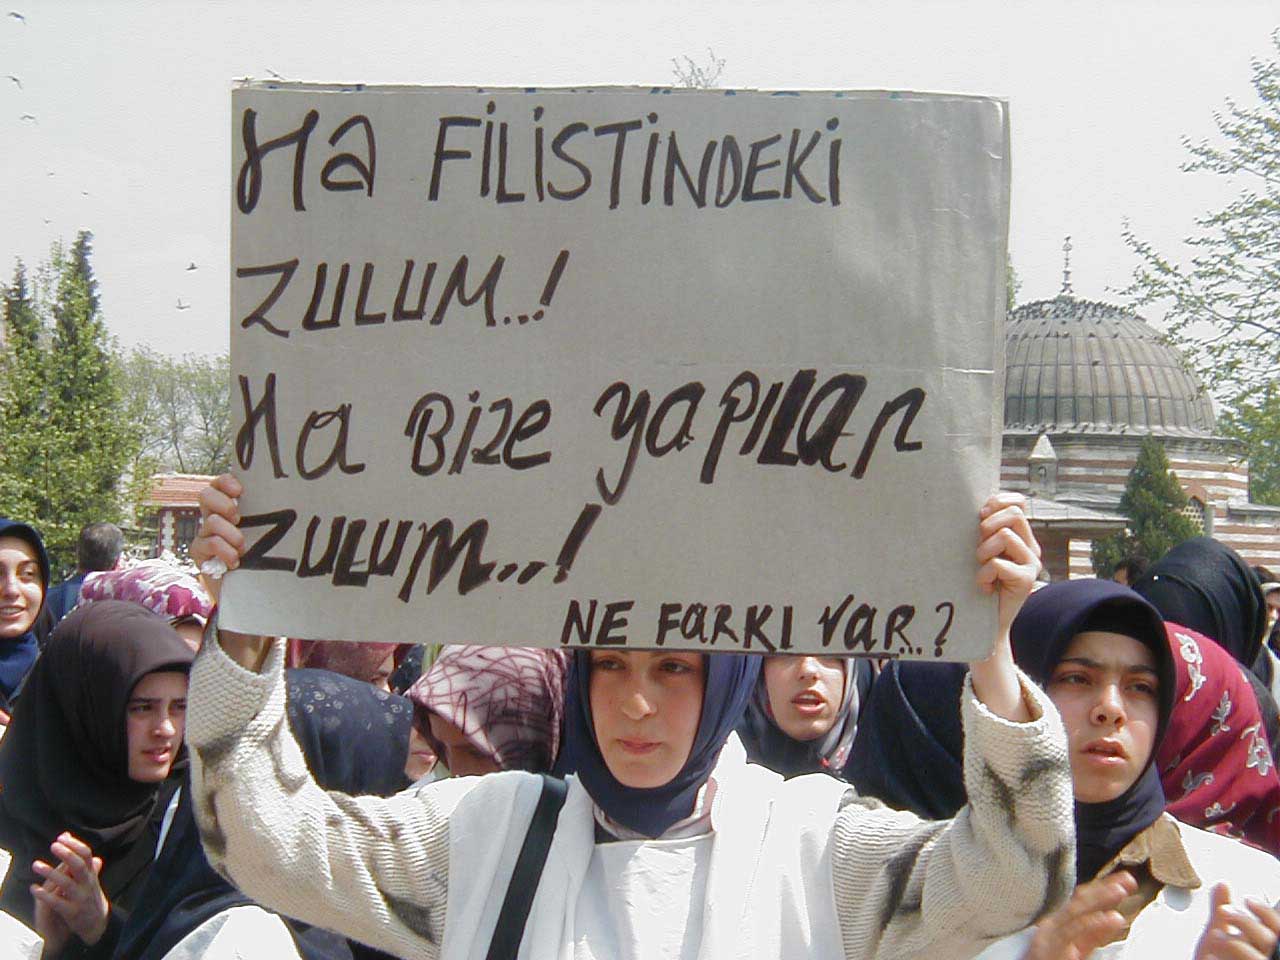 Ha FİLİSTİNDEKİ
ZULUM..!
Ha Bize yapılan
ZULUM..!
NE FARKI VAR...?